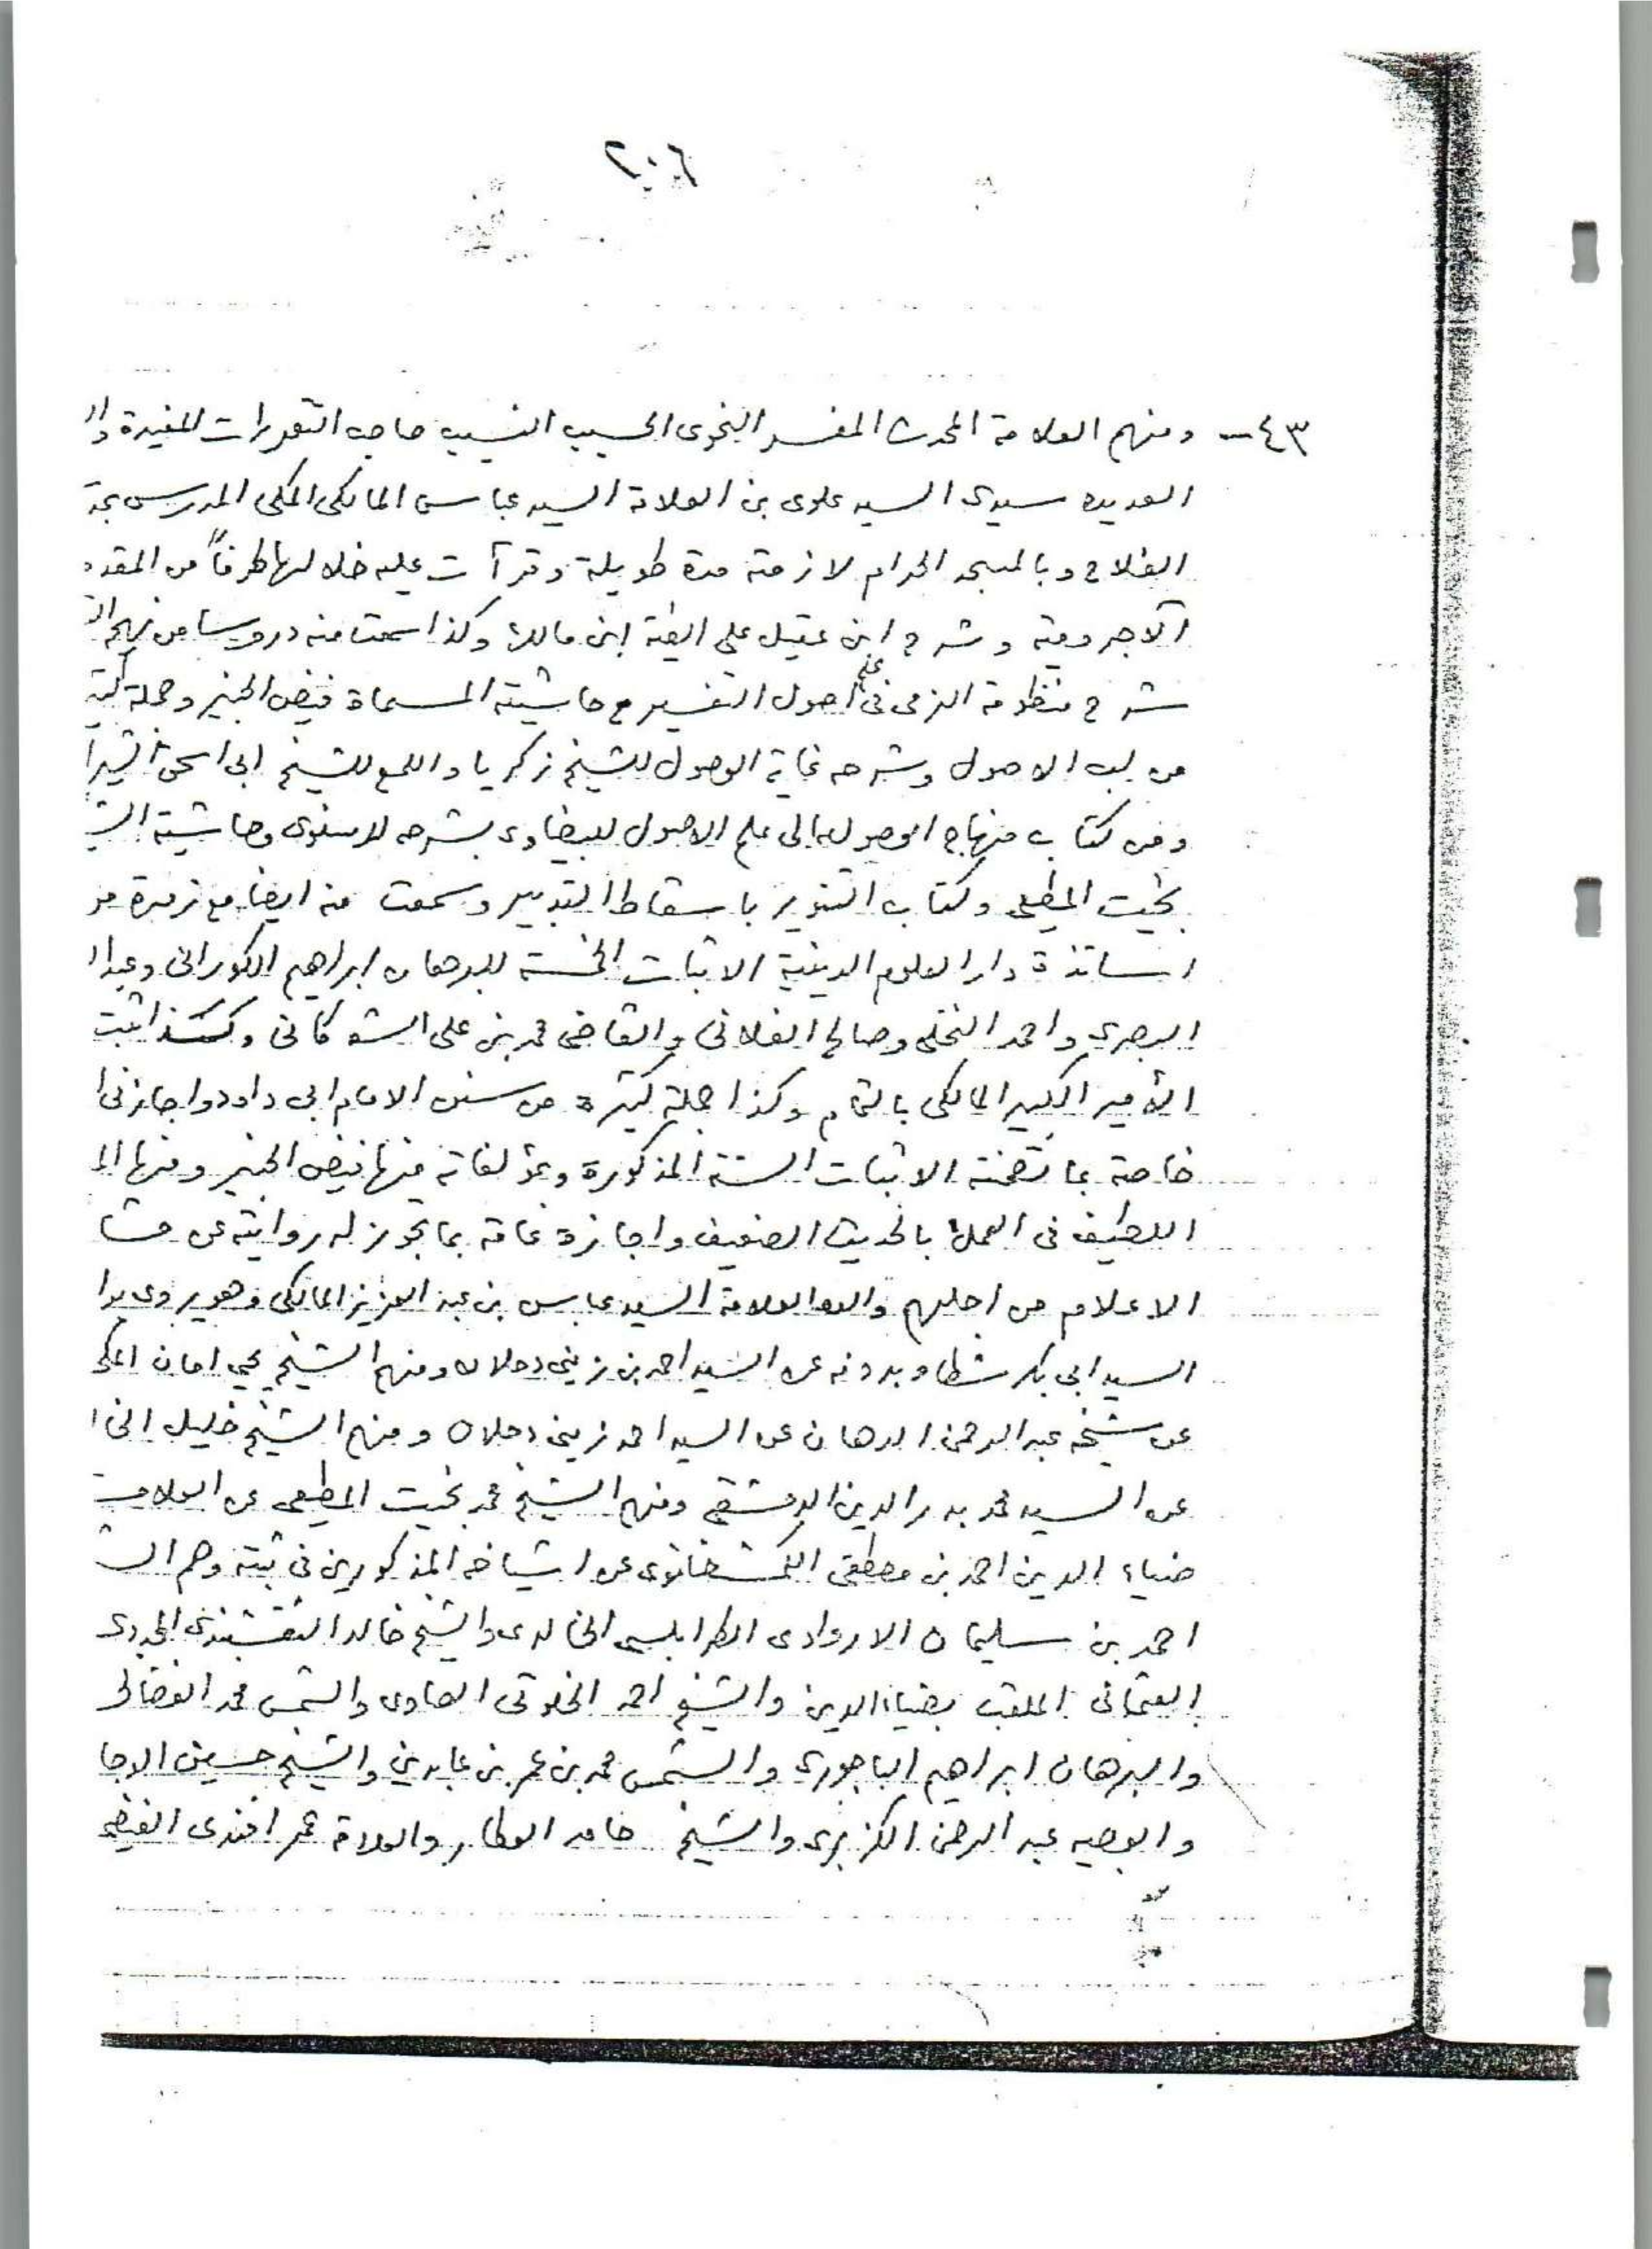 ٢٠٦
٤٣ـ ومنهم العلامة المحدث المفسر النحوى الحسيب النسيب صاحب التقريرات المفيدة وال
العديده سيدى السيد علوى بن العلامة السيد عباس المالكى المكى المدرس بمد
الفلاح وبالمسجد الحرام لازمته مدة طويلة وقرأت عليه خلالها طرفاً من المقدم
الآجرومية وشرح ابن عقيل على الفية ابن مالك وكذا سمعت منه دروسا من نهج الت
شرح منظومة الزمزمى فى علم اصول التفسير مع حاشيته المسماة فيض الخبير وجملة كثير
من لب الاصول وشرحه غاية الوصول للشيخ زكريا واللمع للشيخ ابى اسحق الشيرا
ومن كتاب منهاج الوصول الى علم الاصول للبيضاوى بشرحه للاسنوى وحاشية الش
بخيت المطيعى وكتاب التنوير باسقاط التدبير وسمعت منه ايضا مع زمرة من
اساتذة دار العلوم الدينية الاثبات الخمسة للبرهان ابراهيم الكورانى وعبدا
البصرى واحمد النخلى وصالح الفلانى والقاضى محمد بن على الشوكانى وكذا ثبت
الأمير الكبير المالكى بالتمام وكذا جملة كثيرة من سنن الامام ابى داود واجازنى ا
خاصة بما تضمنته الاثبات الستة المذكورة وبمؤلفاته منها فيض الخبير ومنها الم
اللطيف فى العمل بالحديث الضعيف واجازة عامة بما تجوز له روايته عن مشا
الاعلام من اجلهم والده العلامة السيد عباس بن عبد العزيز المالكى وهو يروى بوا
السيد ابى بكر شطا وبدونه عن السيد احمد بن زينى دحلان ومنهم الشيخ يحيى امان المكى
عن شيخه عبد الرحمن الدهان عن السيد احمد زينى دحلان ومنهم الشيخ خليل الخا
عن السيد محمد بدر الدين الدمشقى ومنهم الشيخ محمد بخيت المطيعى عن العلامة
ضياء الدين احمد بن مصطفى الكمشخانوى عن اشياخه المذكورين فى ثبته وهم الش
احمد بن سليمان الاروادى الطرابلسى الخالدى والشيخ خالد النقشبندى المجددى
العثمانى الملقب بضياء الدين والشيخ احمد الخلوتى الصاوى والشمس محمد الفضالى
والبرهان ابراهيم الباجورى والشمس محمد بن عمر بن عابدين والشيخ حسين الدجا
والوجيه عبد الرحمن الكزبرى والشيخ حامد العطار والعلامة عمر افندى الفيضى